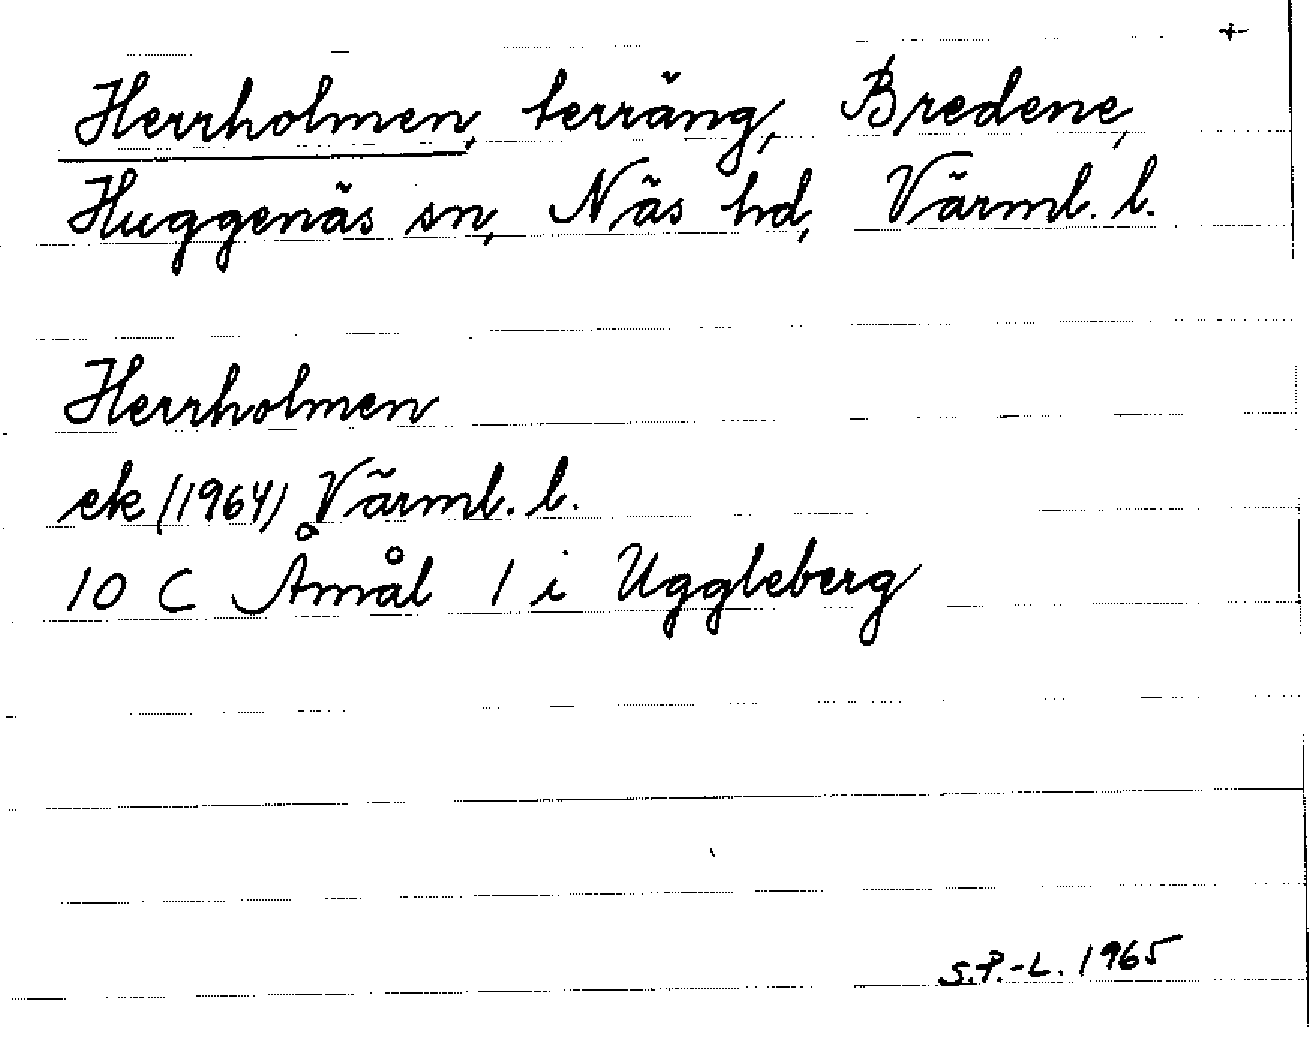 +
Herrholmen, terräng, Bredene,
Huggenäs sn, Näs hd, Värml. l.
Herrholmen
ek (1964) Värml. l.
10 C Åmål 1 i Uggleberg
S.P.-L. 1965